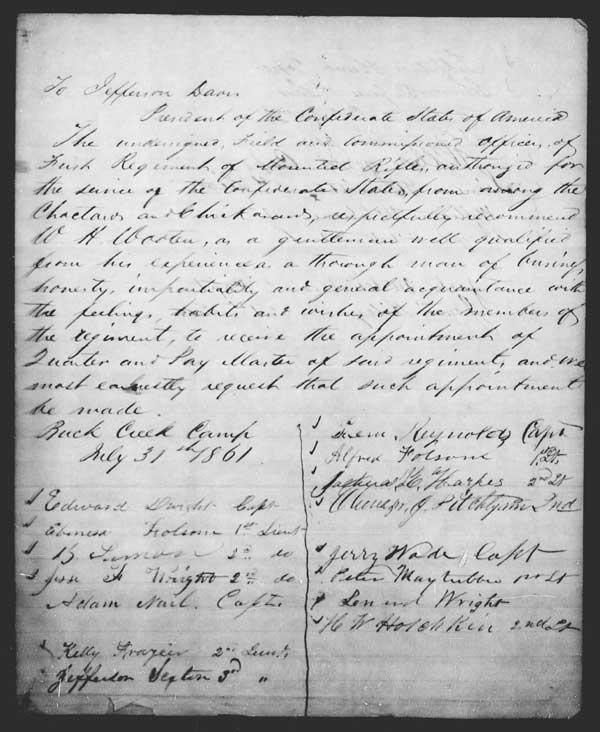 To Jefferson Davis
President of the Confederate States of America
The undersigned, Field and Commissioned Officers, of
First Regiment, of Mounted Rifles, authorized for
the service of the Confederate States, from among the
Choctaws and Chickasaws, respectfully recommend
W. H. Wooten, as a gentleman well qualified
from his experience as a thorough man of business,
honesty, impartiality, and general acquaintance with
the feelings, habits and wishes of the members of
the regiment, to receive the appointment of
Quarter and Pay Master of said regiment, and we
most earnestly request that such appointment
be made.
Buck Creek Camp
July 31st 1861
Edward Dwight Capt
Folsom 1st Lieut
2nd do
Wright 2nd do
Adam Nail. Capt.
Kelly Frazier 2nd Lieut.
Jefferson Sexton 3rd "
Reynolds, Capt
Alfred Folsom 1st Lt.
Sharpes 2nd Lt
J. Pitchlynn 2nd
Jerry Wade, Capt
Peter Maytubbee
Leonard Wright
H W Hotchkin 2nd Lt